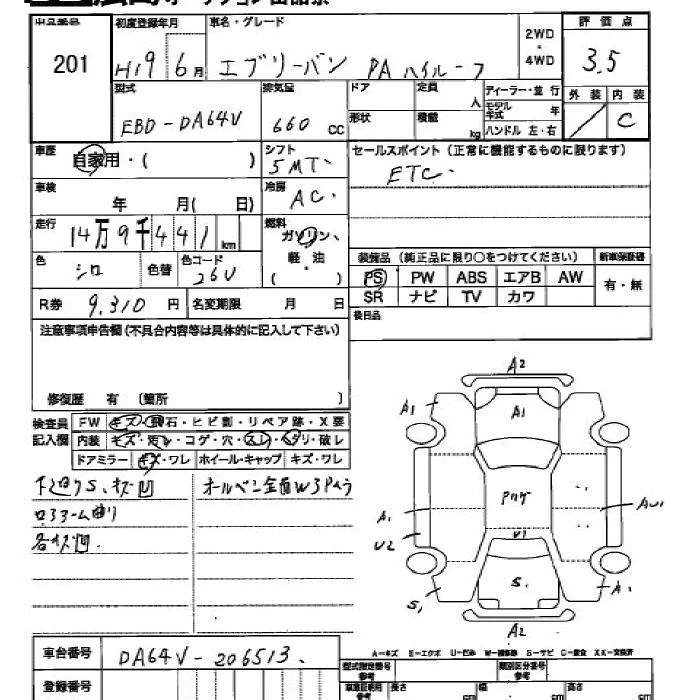 出品番号 初度登録年月 車名・グレード 2WD・4WD 評価点
201 H19 6月 エブリーバン PA ハイルーフ 3.5
型式 排気量 ドア 定員 人 ディーラー・並行 外装 内装
EBD-DA64V 660 CC 形状 積載 kg モデル年式 年 ハンドル 左・右 C
車歴 自家用・( ) シフト 5MT セールスポイント (正常に機能するものに限ります)
車検 年 月( 日) 冷房 AC ETC
走行 14万9千441km 燃料 ガソリン、軽油 ( )
色 シロ 色替 色コード 26U
装備品 (純正品に限り○をつけてください) 新車保証書
PS PW ABS エアB AW 有・無
SR ナビ TV カワ
R券 9,310円 名変期限 月 日 後日品
注意事項申告欄 (不具合内容等は具体的に記入して下さい)
修復歴 有 (箇所 )
検査員記入欄 FW キズ・飛石・ヒビ割・リペア跡・X要
内装 キズ・汚レ・コゲ・穴・スレ・ヘタリ・破レ
ドアミラー キズ・ワレ ホイール・キャップ キズ・ワレ
下廻りS、キズ凹 オルペン全面W3Pムラ
各キズ凹
A2
A1 A1
Pハゲ
A1 AU1
U2 U1
S1 S1 A1
A2
A-キズ E-エクボ U-凹み W-補修跡 S-サビ C-腐食 XX-交換済
車台番号 DA64V-206513
登録番号 型式指定番号 参考 類別区分番号 参考
長さ cm 幅 cm 高さ cm